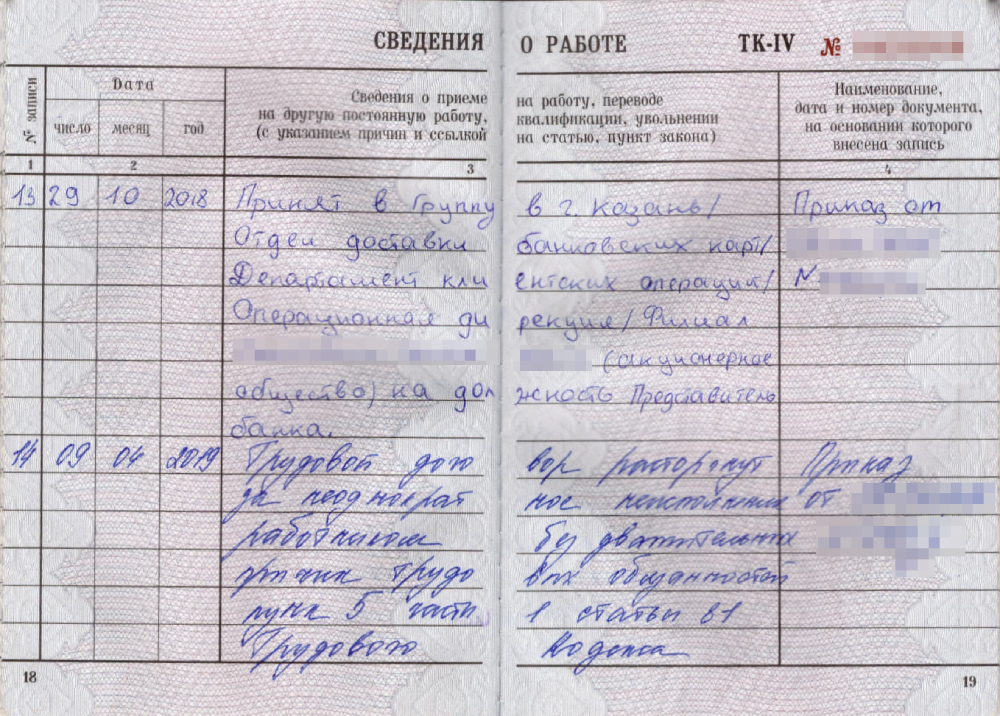 СВЕДЕНИЯ О РАБОТЕ ТК-IV №
№ записи Дата Сведения о приеме на работу, переводе Наименование,
число месяц год на другую постоянную работу, квалификации, увольнении дата и номер документа,
(с указанием причин и ссылкой на статью, пункт закона) на основании которого
внесена запись
1 2 3 4
13 29 10 2018 Принят в Группу в г. Казань/ Приказ от
Отдел доставки банковских карт/
Департамент кли ентских операций/ N
Операционная ди рекция/ Филиал
(акционерное
общество) на дол жность Представитель
банка.
14 09 04 2019 Трудовой дого вор расторгнут Приказ
за неоднократ ное неисполнение от
работником без уважительных
причин трудо вых обязанностей
пункт 5 часть 1 статьи 81
Трудового Кодекса
18 19